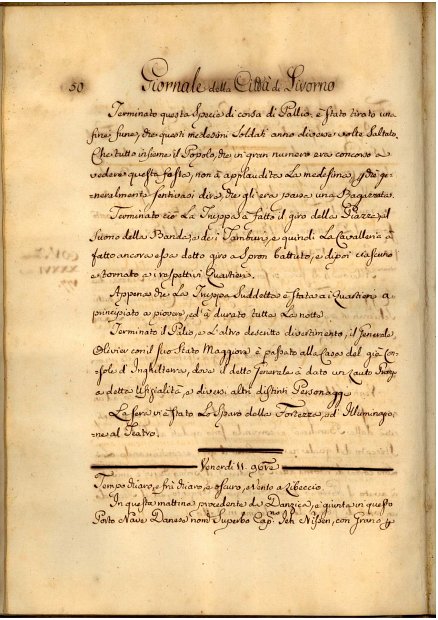 50 Giornale della Città di Livorno
Terminato questa Specie di corsa di Pallio, è stato tirato una
fine fune, che questi medesimi Soldati anno diverse volte Saltato.
Che tutto insieme il Popolo, che in gran numero era concorso a
vedere questa festa, non à applaudita La medesima, che ge-
neralmente sentivasi dire, che gli era parsa una Ragazzata.
Terminato ciò La Truppa à fatto il giro della Piazza, al
Suono della Banda, e dei Tamburi, e quindi La Cavalleria à
fatto ancora essa detto giro a Spron battuto, e dipoi ciascuno
è tornato ai respettivi Quartieri.
Appena che La Truppa Suddetta è stata ai Quartieri a
principiato a piovere, ed à durato tutta La notte.
Terminato il Palio, e L'altro descritto divertimento, il Generale
Olivier con il suo Stato Maggiore è passato alla Casa del già Con-
sole d'Inghilterra, dove il detto Generale à dato un Lauto
a detta Ufizialità, e diversi altri distinti Personaggi.
La sera vi è stato Lo Sparo della Fortezza, ed Illuminazio-
ne al Teatro.
Venerdì 11. 9bre
Tempo chiaro, e frà chiaro, e oscuro, e Vento a Libeccio.
In questa mattina procedente da Danzica, è giunta in questo
Porto Nave Danese nom.ta Superbo Cap.no Nissen, con Grano